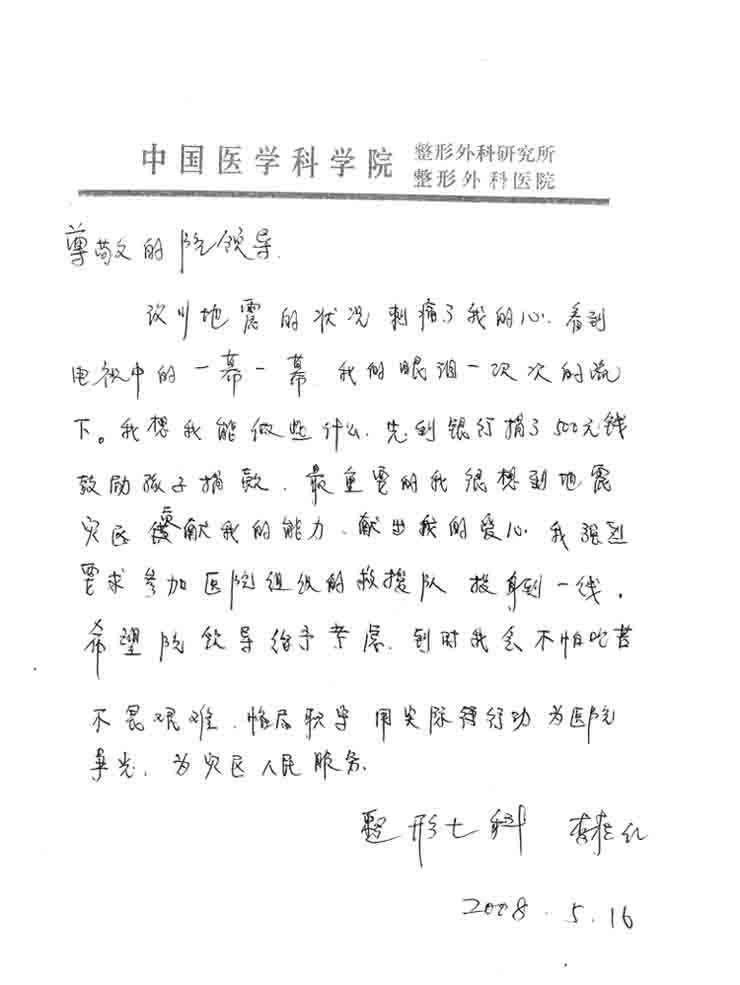 中国医学科学院 整形外科研究所
整形外科医院
尊敬的院领导.
汶川地震的状况刺痛了我的心.看到
电视中的一幕一幕.我的眼泪一次次的流
下。我想我能做些什么.先到银行捐了500元钱
鼓励孩子捐款.最重要的我很想到地震
灾区贡献我的能力、献出我的爱心.我强烈
要求参加医院组织的救援队 投身到一线.
希望院领导给予考虑.到时我会不怕吃苦
不畏艰难.恪尽职守 用实际行动为医院
争光.为灾区人民服务.
整形七科 李
2008.5.16